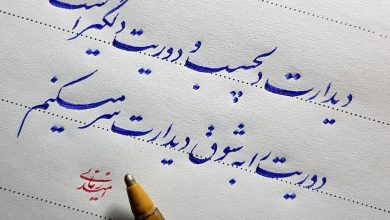 دیدارت دلچسب و دوریت دلگیر است
دوریت را به شوق دیدارت سر میکنیم